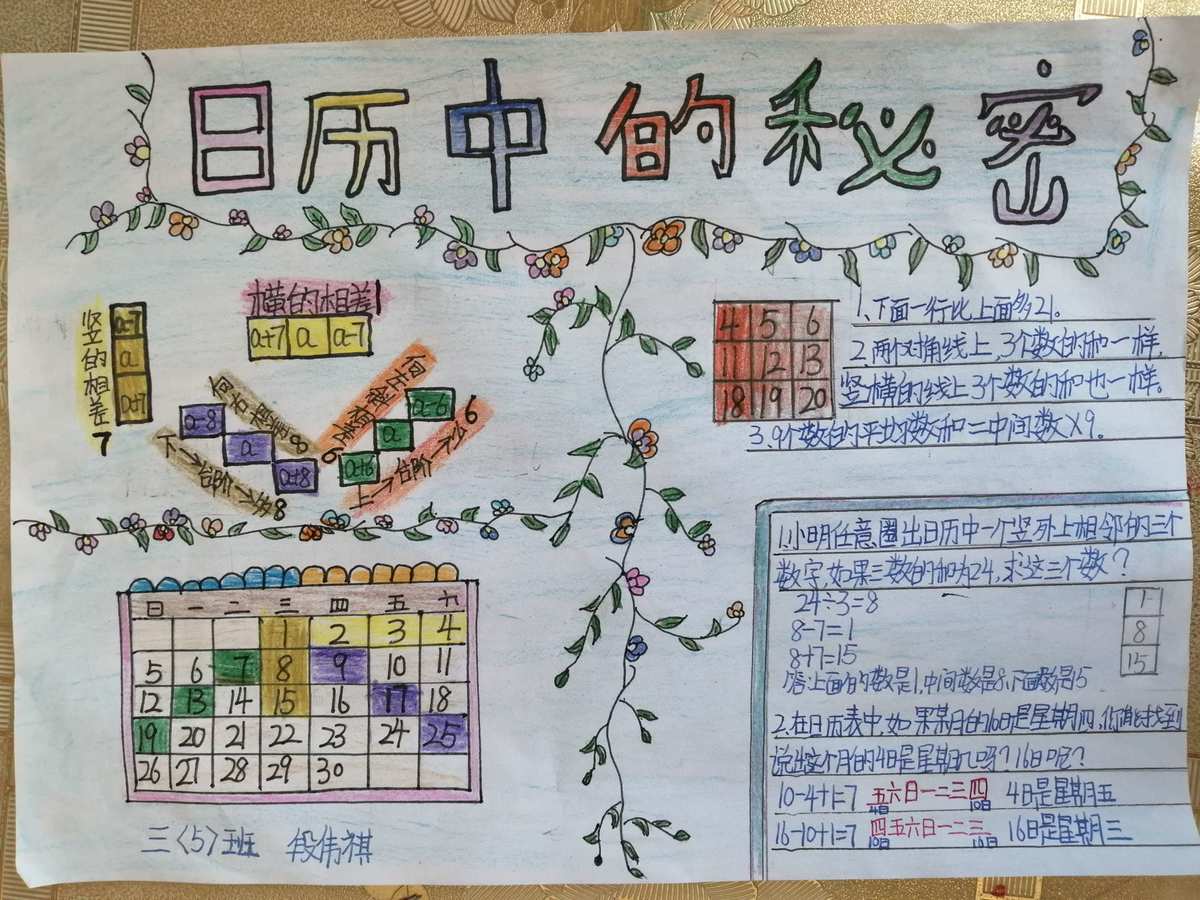 日历中的秘密
竖的相差7
a-7
a
a+7
横的相差1
a+7 a a-7
a-8
a
a+8
下→台阶→为8
a-6
a
a+6
上→台阶→为6
4 5 6
11 12 13
18 19 20
1、下面一行比上面多21。
2.两个对角线上,3个数的和一样,
竖横的线上3个数的和也一样。
3.9个数的平均数和=中间数×9。
日 一 二 三 四 五 六
1 2 3 4
5 6 7 8 9 10 11
12 13 14 15 16 17 18
19 20 21 22 23 24 25
26 27 28 29 30
三〈5〉班 段伟祺
1.小明任意圈出日历中一个竖列上相邻的三个
数字,如果三数的和为24,求这三个数?
24÷3=8
8-7=1
8+7=15
答:上面的数是1,中间数是8,下面数是15
1
8
15
2.在日历表中,如果某月的10日是星期四,你能找到
说出这个月的4日是星期几吗?16日呢?
10-4+1=7 五六日一二三四 4日是星期五
4日 10日
16-10+1=7 四五六日一二三 16日是星期三
10日 16日